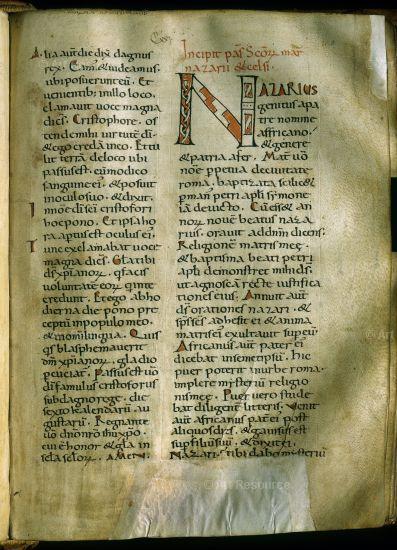 Alia aut̄ die dix̄ dagnus
rex. Eam̄ & uideamus
ubi posierunt eū. Et
uenientib; in illo loco.
clamauit uoce magna
dicēs. Cristophore. os
tende mihi uirtutē dī.
& ego credā in eo. Et tu
lit terrā de loco ubi
passus est. cū modico
sanguine eī. & posuit
in oculo suo. & dixit.
In noc̄ dī sc̄i cristofori
hoc pono. Et ipsa ho
ra aptus est oculus eī.
Tunc exclamabat uoce
magna dicēs. Gla tibi
ds̄ xp̄ianoꝝ. q facis
uoluntatē eoꝝ q in te
credunt. Et ego ab ho
dierna die pono pre
ceptū in populo meo.
& om̄i lingua. Quis
qs blasphemauerit
dm̄ xp̄ianoꝝ. gladio
pereat. Passus est uo
dī famulus cristoforus
sub dagno rege. die
sexto kalendarū au
gustarū. Regnante
uo dn̄o nr̄o ihu xp̄o.
cui ē honor & gla in
sc̄la sc̄loꝝ. Amen.
Incipit pas̄ Sc̄oꝝ mar̄
nazarii & celsi.
NAZARIUS
genitus apa
tre nomine
affricano.
& genere
& patria afer. Mat̄ uō
noē ppetua de ciuitate
roma. baptizata sub b̄
petri apli
deuicto. Cū ēss& an
noꝝ nouē beatus naza
rius. orauit ad dnm̄ dicens.
Religionē matris meę.
& baptisma beati petri
apli demonstret mihi ds̄.
ut agnoscā rectę iustifica
tiones eius. Annuit aut̄
ds̄ orationes nazari. &
sps̄ sc̄s adhesit ei & anima
matris eī exultauit
Africanus aut̄ pater eī
dicebat in semetipsū. Hic
puer poterit in urbe roma.
implere mysteriū religio
nis meę. Puer uero stude
bat diligent̄ litteris. Uenit
aut̄ africanus pat̄ eī post
aliquos dies. & gauisus est
sup filiū suū. & dixit eī.
Nazari. tibi dabo mysteriū